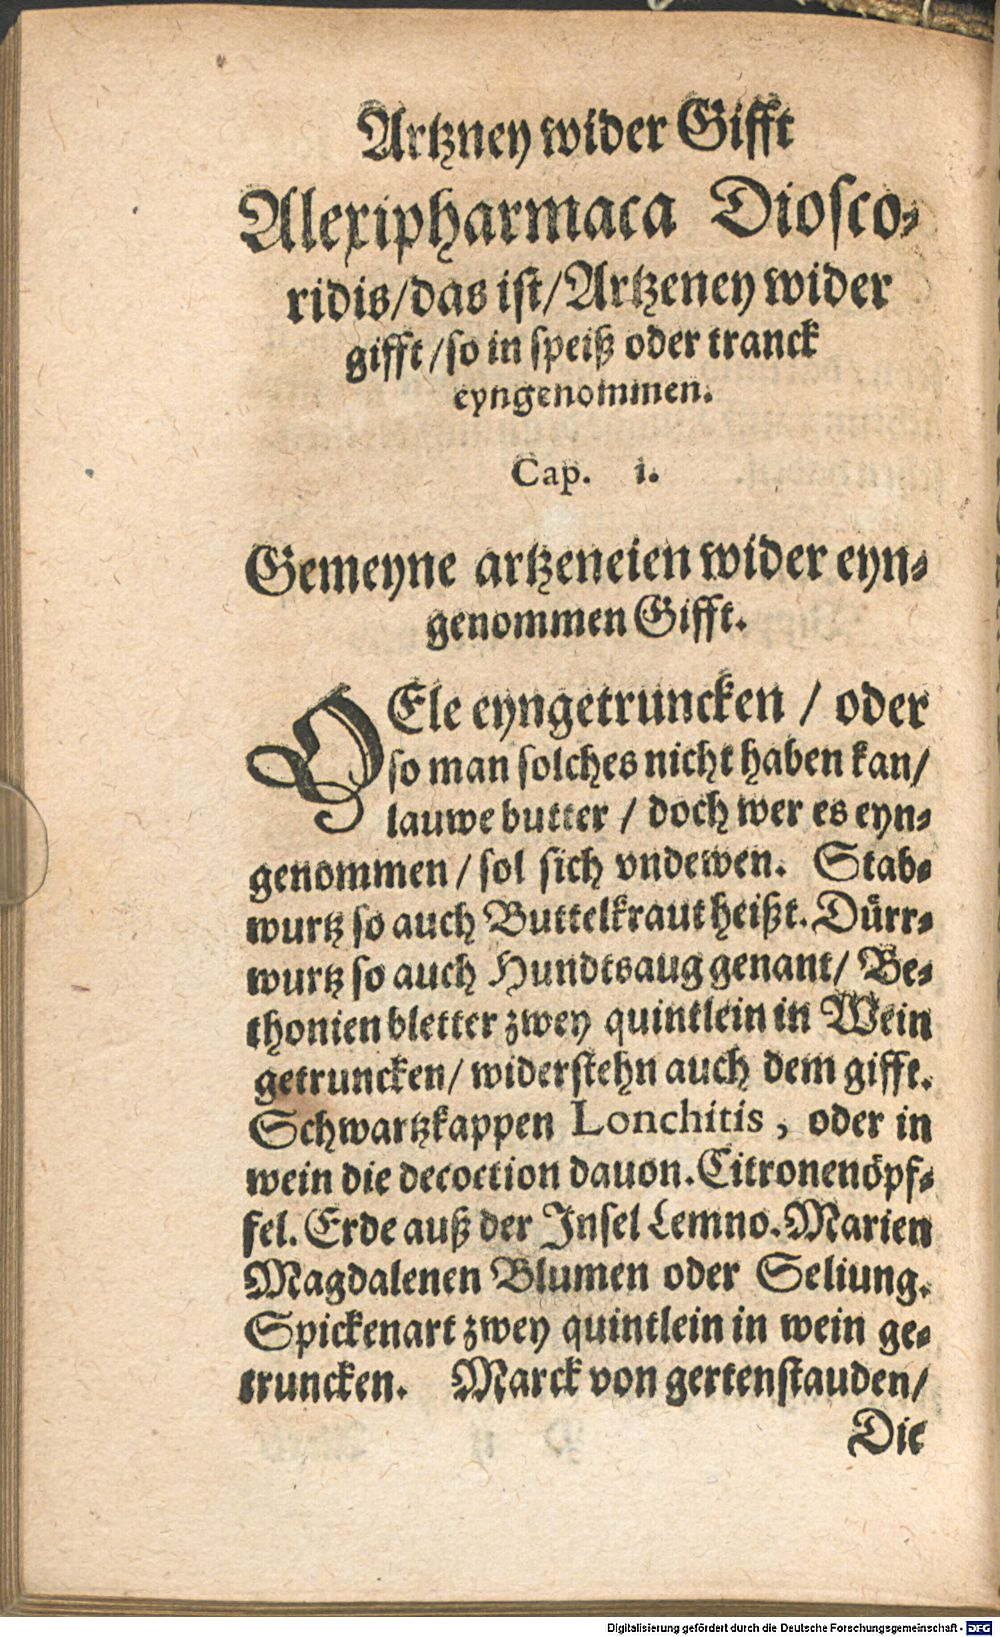 Artzney wider Gifft
Alexipharmaca Diosco⸗
ridis/das ist/Artzeney wider
gifft/so in speiß oder tranck
eyngenommen.
Cap. i.
Gemeyne artzeneien wider eyn⸗
genommen Gifft.
OEle eyngetruncken / oder
so man solches nicht haben kan/
lauwe butter / doch wer es eyn⸗
genommen / sol sich vndewen. Stab⸗
wurtz so auch Buttelkraut heißt. Dürr⸗
wurtz so auch Hundtsaug genant/ Be⸗
thonien bletter zwey quintlein in Wein
getruncken/ widerstehn auch dem gifft.
Schwartzkappen Lonchitis, oder in
wein die decoction dauon. Citronenöpf⸗
fel. Erde auß der Insel Lemno. Marien
Magdalenen Blumen oder Seliung.
Spickenart zwey quintlein in wein ge⸗
truncken. Marck von gertenstauden/
Die
Digitalisierung gefördert durch die Deutsche Forschungsgemeinschaft - DFG